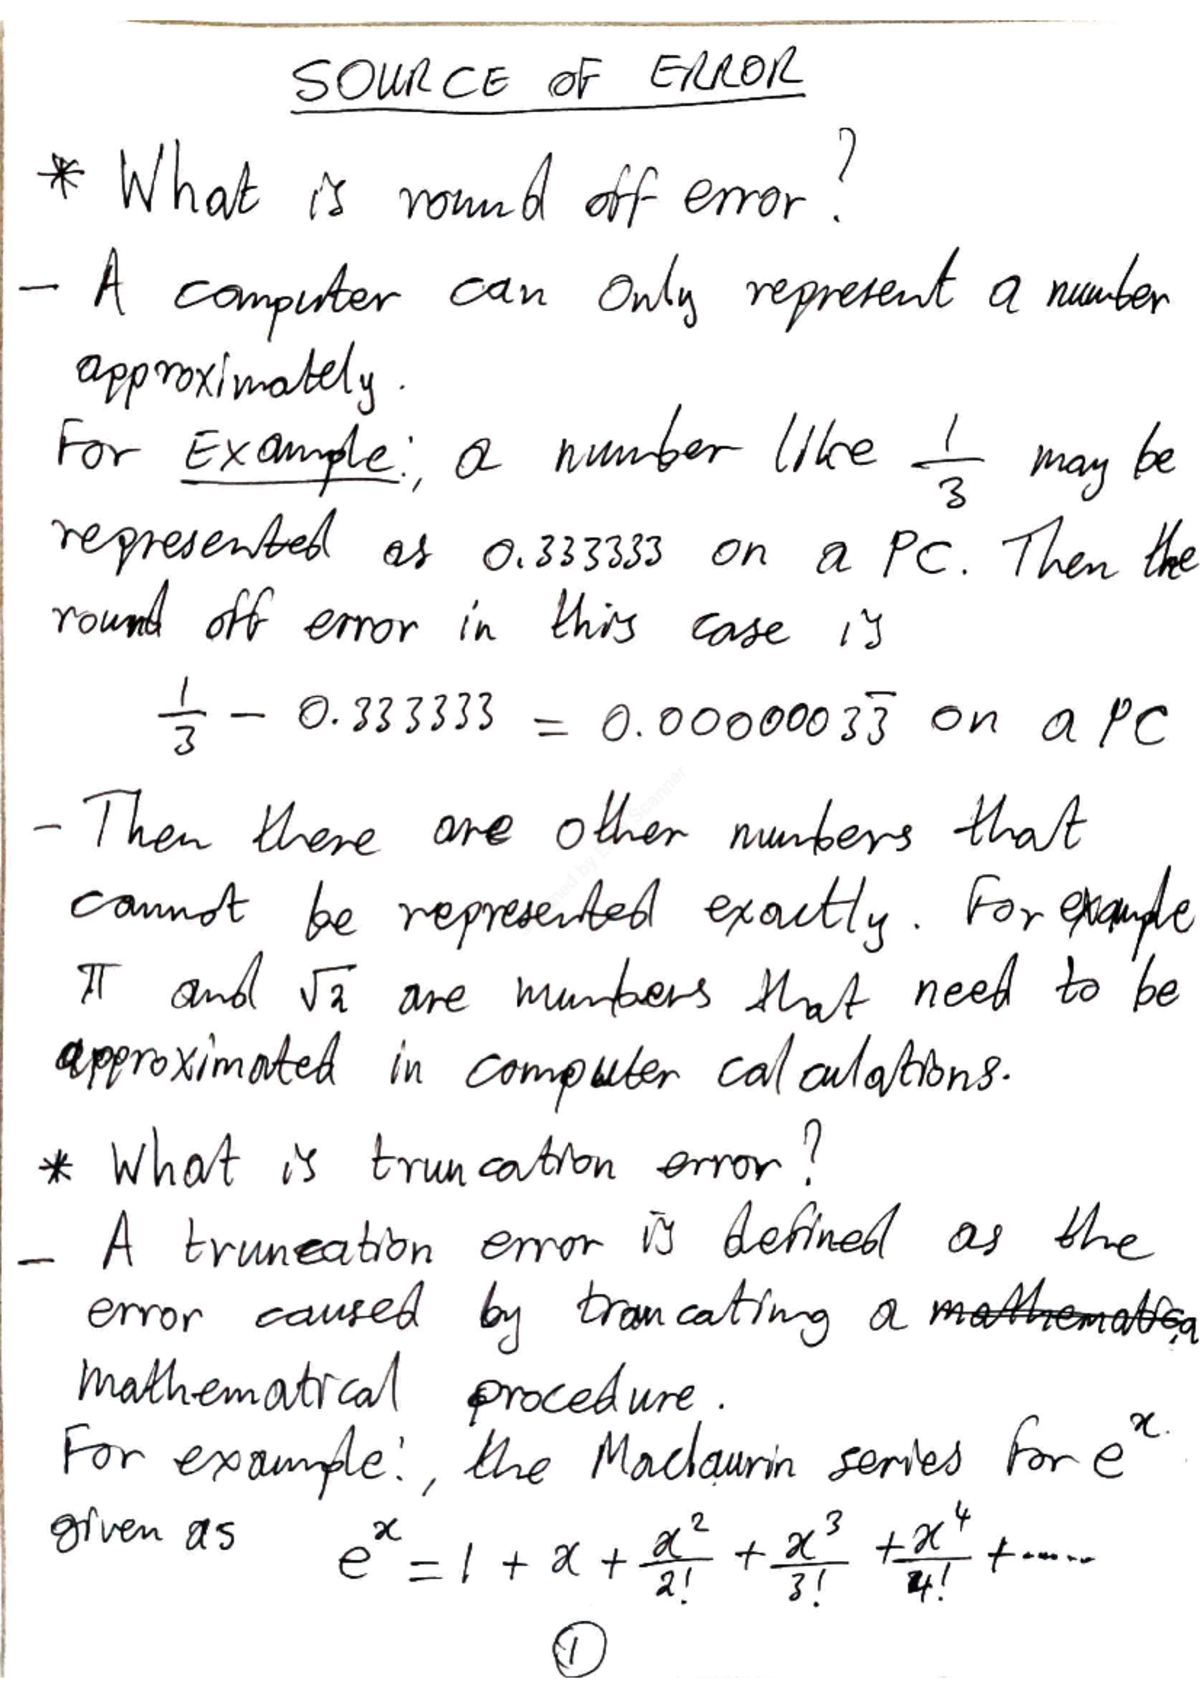 SOURCE OF ERROR
* What is round off error?
- A computer can only represent a number
approximately.
For Example:, a number like 1/3 may be
represented as 0.333333 on a PC. Then the
round off error in this case is
1/3 - 0.333333 = 0.00000033̅ on a PC
- Then there are other numbers that
cannot be represented exactly. For example
π and √2 are numbers that need to be
approximated in computer calculations.
* What is truncation error?
- A truncation error is defined as the
error caused by truncating a ~~mathematica~~
mathematical procedure.
For example:, the Maclaurin series for eˣ
given as eˣ = 1 + x + x²/2! + x³/3! + x⁴/4! + ......
①